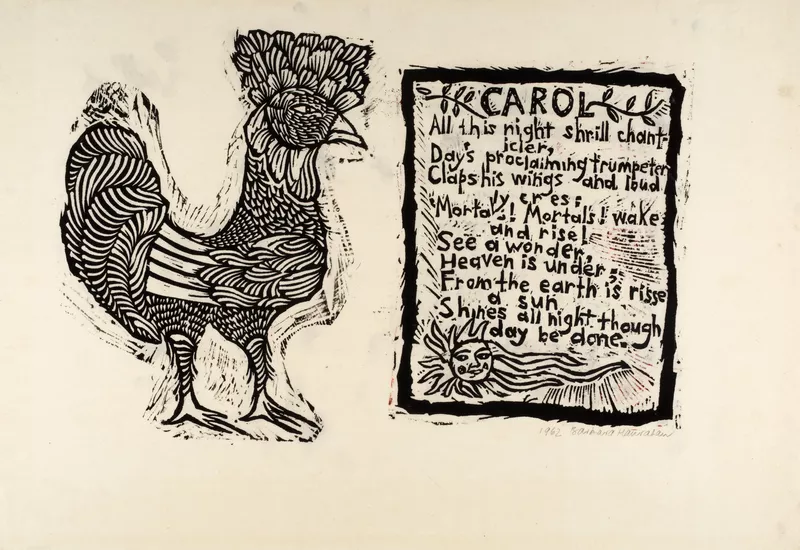 CAROL
All this night shrill chant-
icler,
Day's proclaiming trumpeter
Claps his wings and loud
ly cries:
"Mortals! Mortals! wake
and rise!
See a wonder,
Heaven is under;
From the earth is risse
a sun
Shines all night though
day be done.
1962 Barbara